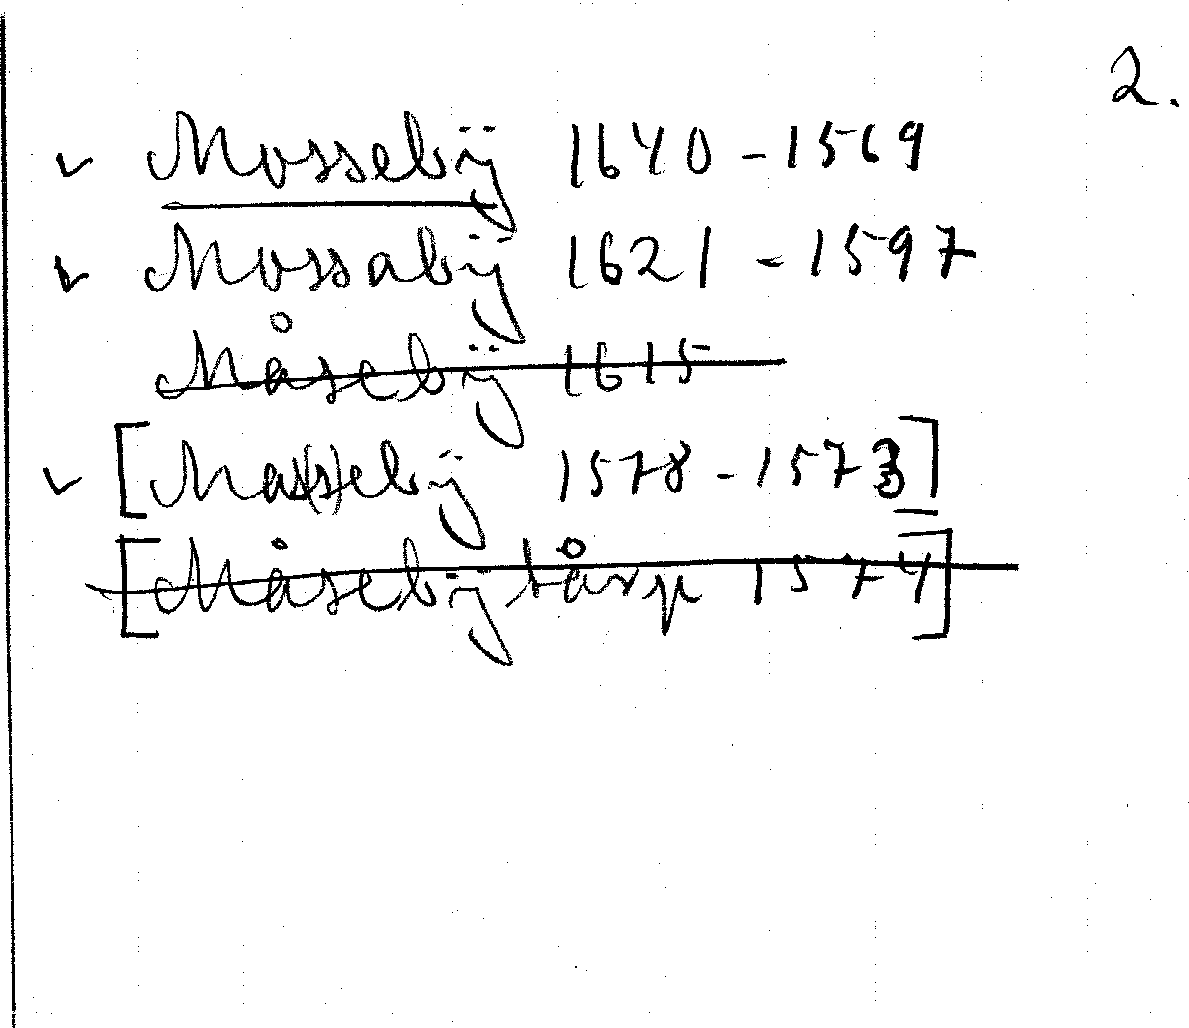 2.
✓ Mossebÿ 1640 - 1569
✓ Mossabÿ 1621 - 1597
Måsebÿ 1615
✓ [Mas(s)ebÿ 1578 - 1573]
[Måsebÿtårp 1574]